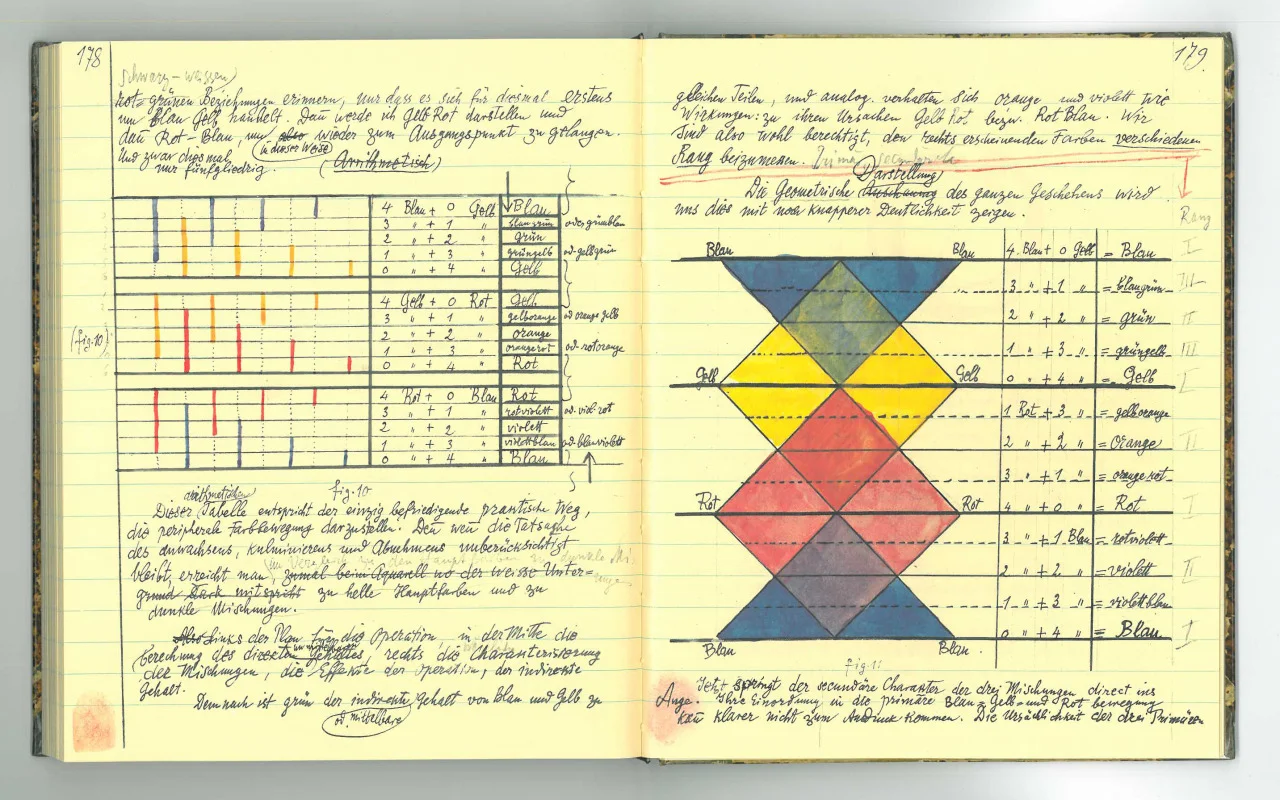 178
Schwarz-weissen)
rot-grünen Beziehungen erinnern, nur dass es sich für diesmal erstens
um Blau Gelb handelt. Dan werde ich Gelb Rot darstellen und
dan Rot-Blau, um also wieder zum Ausgangspunkt zu gelangen.
Und zwar diesmal (in dieser Weise)
nur fünfgliedrig. (Arrithmetisch)
4 Blau + 0 Gelb Blau
3 " + 1 " blaugrün oder grünblau
2 " + 2 " grün
1 " + 3 " grüngelb od. gelbgrün
0 " + 4 " Gelb
4 Gelb + 0 Rot Gelb
3 " + 1 " gelborange od orange gelb
2 " + 2 " orange
(fig. 10) 1 " + 3 " orangerot od. rotorange
0 " + 4 " Rot
4 Rot + 0 Blau Rot
3 " + 1 " rotviolett od. viol. rot
2 " + 2 " violett
1 " + 3 " violettblau od. blauviolett
0 " + 4 " Blau
fig. 10
arithmetische
Dieser Tabelle entspricht der einzig befriedigende praktische Weg,
die periphere Farbbewegung darzustellen. Den wen die Tatsache
des anwachsens, kulminierens und Abnehmens unberücksichtigt
bleibt, erreicht man zumal beim Aquarell wo der weisse Unter=
grund stark mitspricht zu helle Hauptfarben und zu
dunkle Mischungen.
Also Links der Plan für die Operation, in der Mitte die
berechnung des direkten Gehaltes, rechts die Charakterisierung
der Mischungen, die Effekte der operation, der indirekte
Gehalt.
Demnach ist grün der indirekte Gehalt von Blau und Gelb zu
(od. mittelbare
179.
gleichen Teilen, und analog. verhalten sich orange und violett wie
Wirkungen: zu ihren Ursachen Gelb Rot bezw. Rot Blau. Wir
sind also wohl berechtigt, den rechts erscheinenden Farben verschiedenen
Rang beizumessen.
Darstellung
Die Geometrische des ganzen Geschehens wird
uns dies mit noch knapperer Deutlichkeit zeigen.
Rang
Blau Blau 4. Blau + 0 Gelb = Blau I
3 " + 1 " = blaugrün III
2 " + 2 " = grün II
1 " + 3 " = grüngelb III
Gelb Gelb 0 " + 4 " = Gelb I
1 Rot + 3 " = gelborange
2 " + 2 " = Orange II
3 " + 1 " = orangerot
Rot Rot 4 " + 0 " = Rot I
3 " + 1 Blau = rotviolett
2 " + 2 " = violett II
1 " + 3 " = violettblau
0 " + 4 " = Blau I
Blau Blau.
fig. 11
Jetzt springt der secundäre Charakter der drei Mischungen direct ins
Auge. Ihre Einordnung in die primäre Blau= Gelb= und Rot bewegung
kan klarer nicht zum Ausdruck kommen. Die Ursächlichkeit der drei Primären